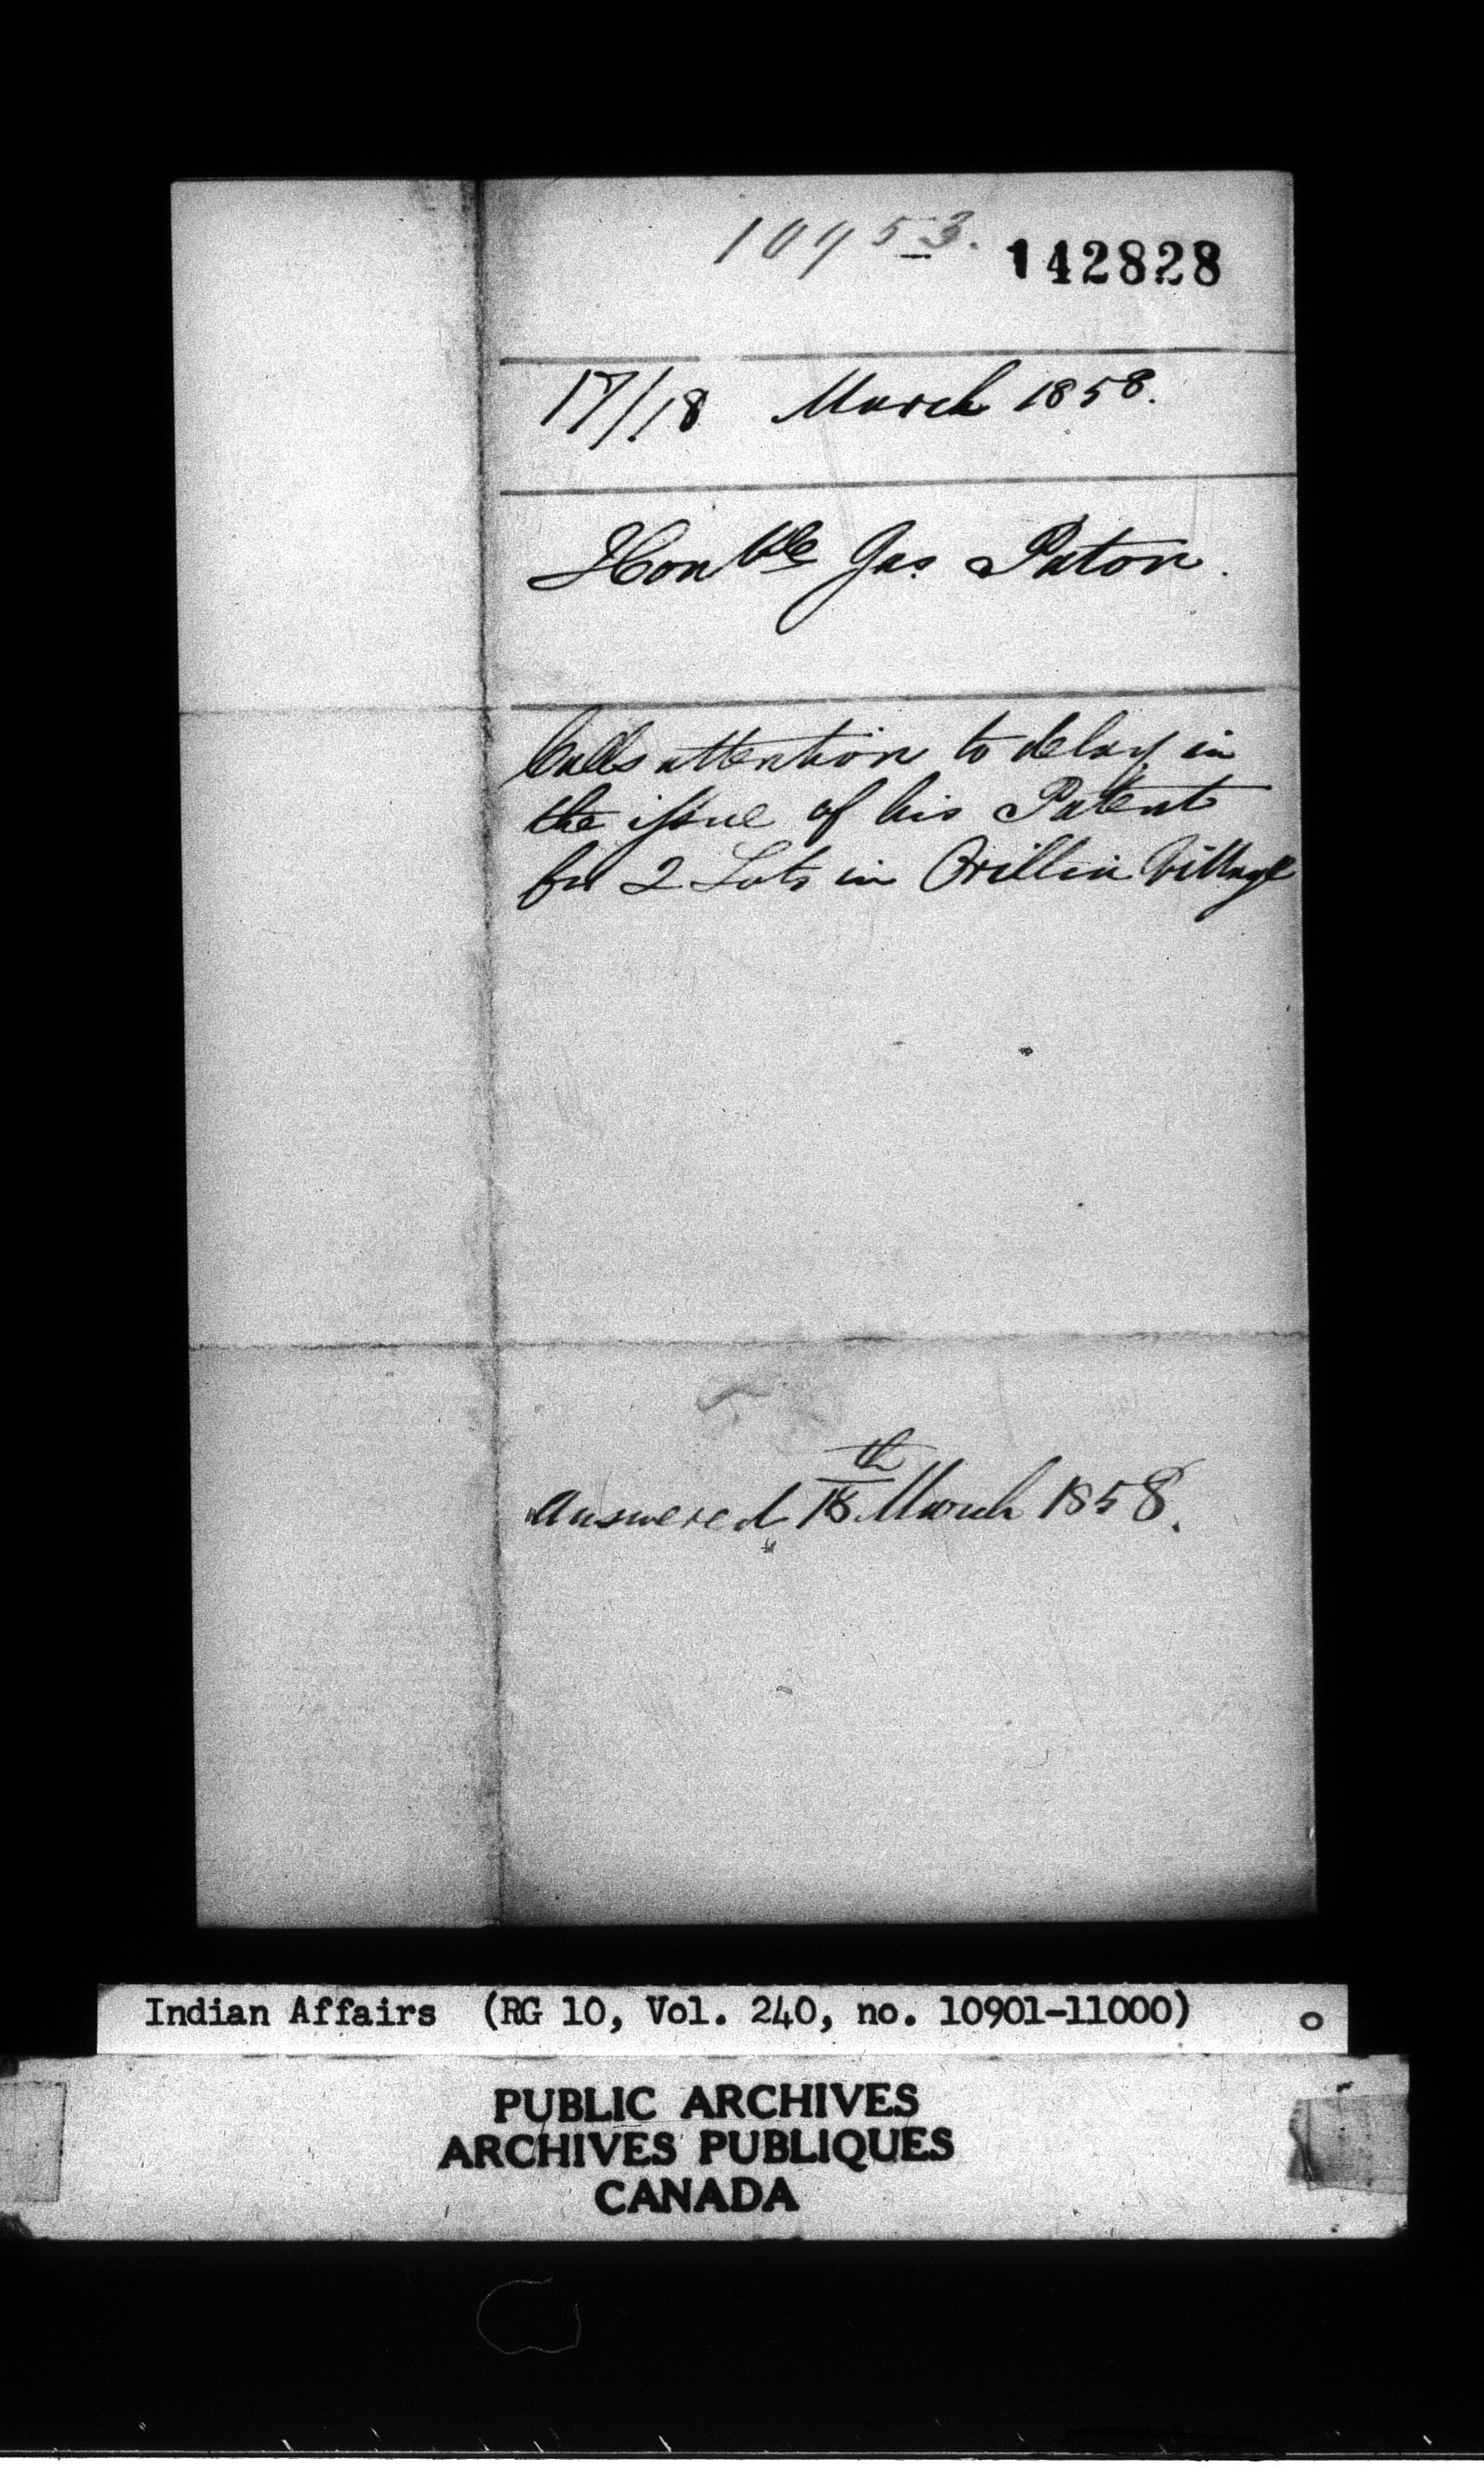 10953.
142828
17/18 March 1858.
Honble Jas Paton.
Calls attention to delay in
the issue of his Patent
for 2 Lots in Orillia Village
Answered 18th March 1858.
Indian Affairs (RG 10, Vol. 240, no. 10901-11000)
PUBLIC ARCHIVES
ARCHIVES PUBLIQUES
CANADA